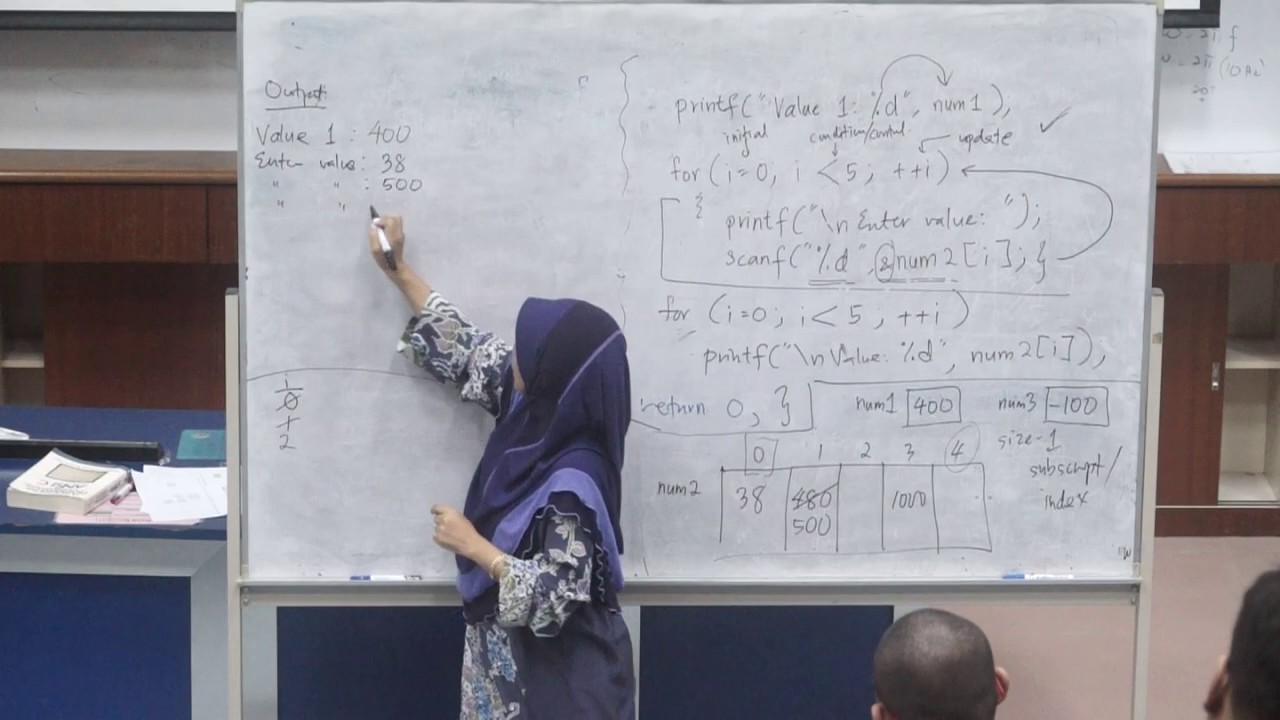 Output
Value 1 : 400
Enter value : 38
" " : 500
" "
i
0
1
2
printf("Value 1: %d", num1);
initial condition/control update
for (i=0; i<5; ++i)
{ printf("\n Enter value: ");
scanf("%d", &num2[i]; }
for (i=0; i<5; ++i)
printf("\n Value: %d", num2[i]);
return 0; }
num1 400 num3 -100
0 1 2 3 4 size-1
subscript/
index
num2 38 480 1000
500
ANSI C